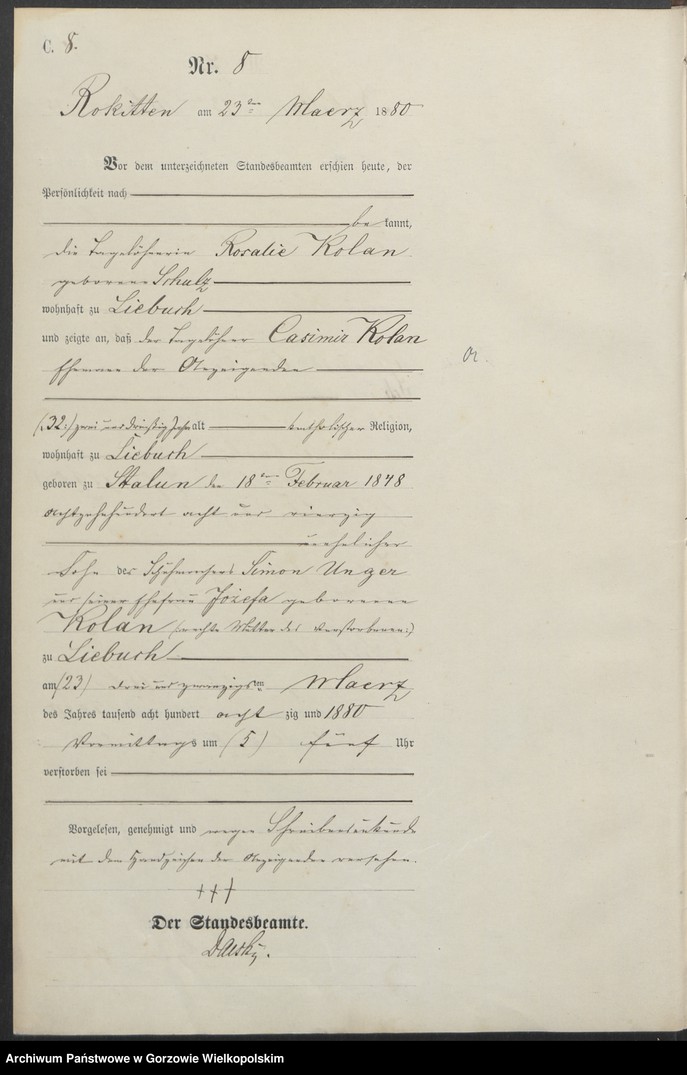 C. 8.
Nr. 8
Rokitten am 23ten Maerz 1880
Vor dem unterzeichneten Standesbeamten erschien heute, der
Persönlichkeit nach
bekannt,
die Tagelöhnerin Rosalie Kolan
geborene Schulz
wohnhaft zu Liebuch
und zeigte an, daß der Tagelöhner Casimir Kolan
Ehemann der Anzeigenden
(32:) zwei und dreißig Jahr alt katholischer Religion,
wohnhaft zu Liebuch
geboren zu Stalun den 18ten Februar 1848
achtzehnhundert acht und vierzig
unehelicher
Sohn des Simon Unger
und seiner Ehefrau Jozefa geborenen
Kolan (rechte Mutter des Verstorbenen:)
zu Liebuch
am (23) drei und zwanzigsten Maerz
des Jahres tausend acht hundert acht zig und 1880
Vormittags um (5) fünf Uhr
verstorben sei
Vorgelesen, genehmigt und wegen Schreibensunkunde
mit dem Handzeichen der Anzeigenden versehen.
+++
Der Standesbeamte.
Archiwum Państwowe w Gorzowie Wielkopolskim